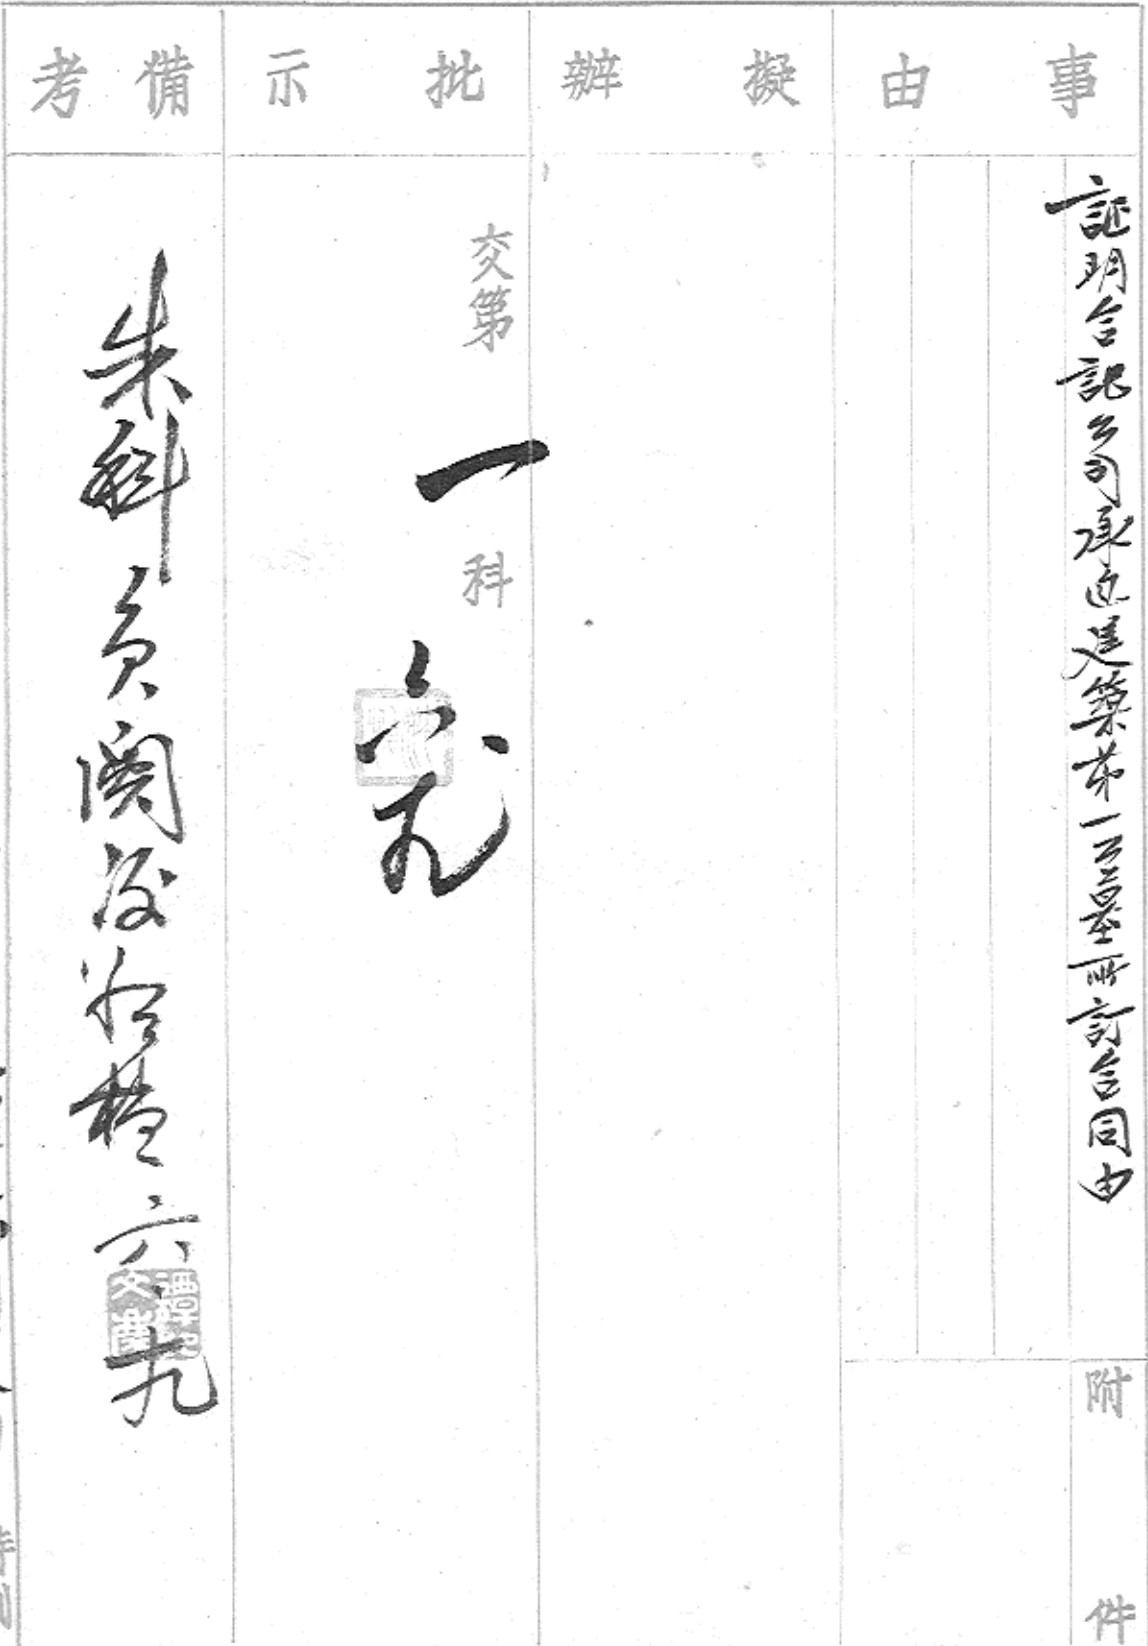 事由
証明合記公司承造建築第一公墓所訂合同由
附件
擬辦
批示
交第一科
六九
備考
朱科員閱後
六九